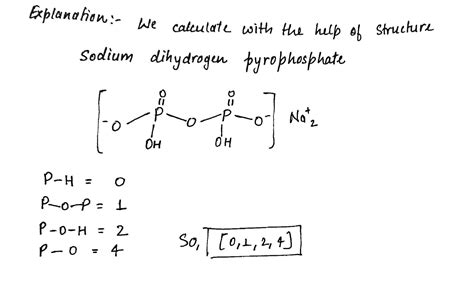 Explanation:- We calculate with the help of structure
Sodium dihydrogen pyrophosphate
O O
[-O P O P O-] Na+2
OH OH
P-H = 0
P-O-P = 1
P-O-H = 2
P-O = 4
So, [0,1,2,4]